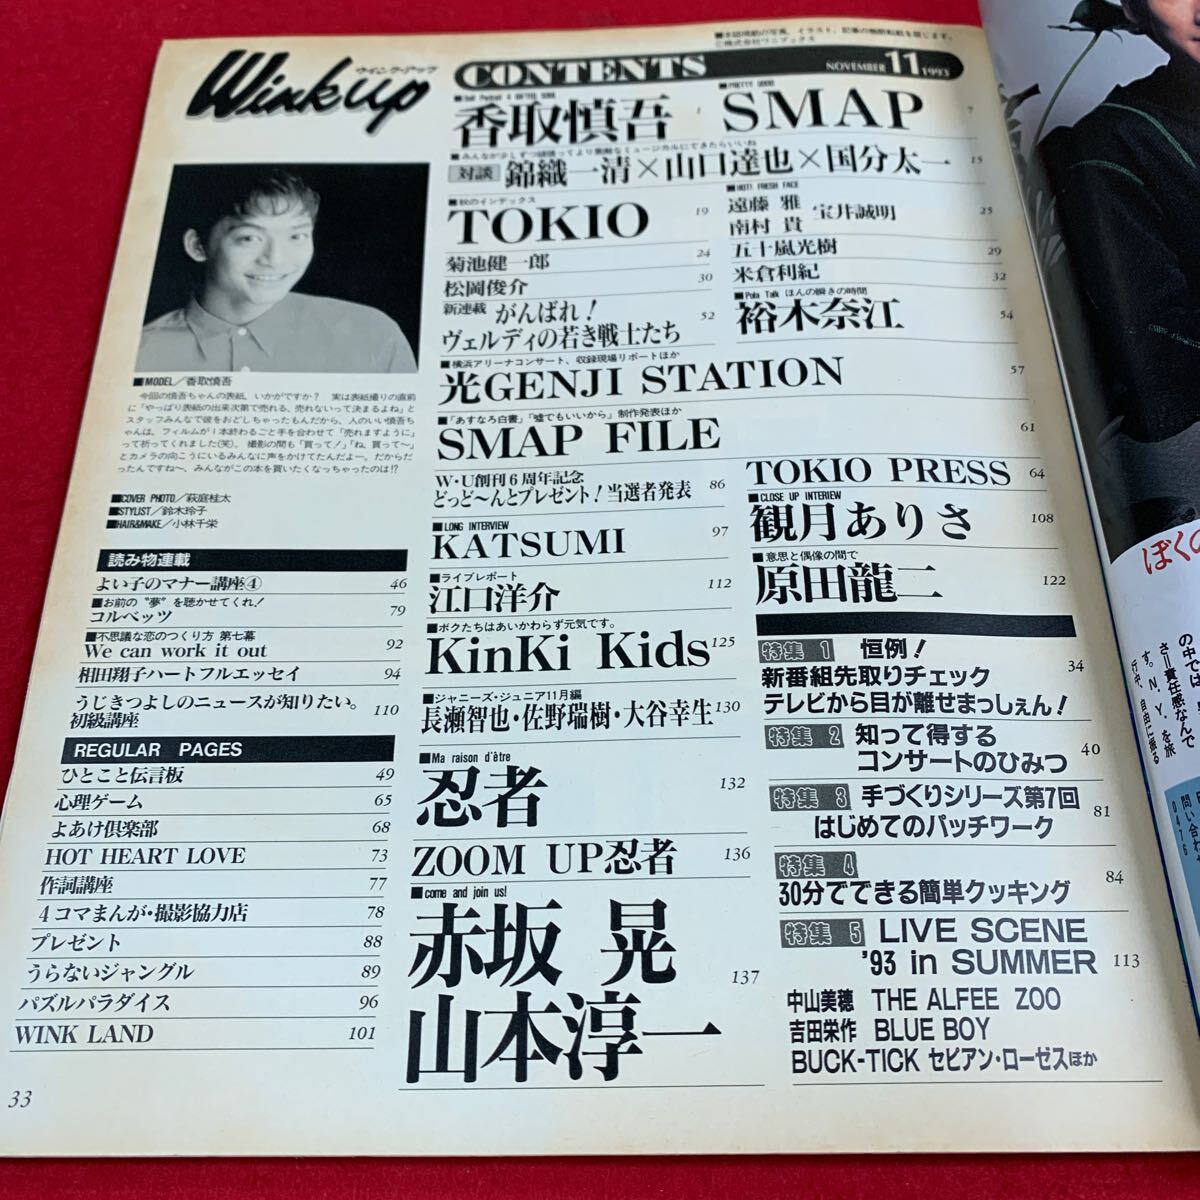 ■本誌掲載の写真、イラスト、記事の無断転載を禁じます。
©株式会社ワニブックス
Wink up
ウインク・アップ
CONTENTS
NOVEMBER 11 1993
■Self Portrait A GIFTED SOUL
香取慎吾
■PRETTY GOOD
SMAP 7
■みんなが少しずつ頑張ってより素敵なミュージカルにできたらいいね
対談 錦織一清×山口達也×国分太一 15
■秋のインデックス
TOKIO 19
菊池健一郎 24
松岡俊介 30
新連載 がんばれ!
ヴェルディの若き戦士たち 52
■HOT! FRESH FACE
遠藤 雅
南村 貴
宝井誠明 25
五十嵐光樹 29
米倉利紀 32
■Pola Talk ほんの瞬きの時間
裕木奈江 54
■横浜アリーナコンサート、収録現場リポートほか
光GENJI STATION 57
■「あすなろ白書」「嘘でもいいから」制作発表ほか
SMAP FILE 61
W・U創刊6周年記念
どっど〜んとプレゼント! 当選者発表 86
TOKIO PRESS 64
■LONG INTERVIEW
KATSUMI 97
■CLOSE UP INTERIEW
観月ありさ 108
■ライブレポート
江口洋介 112
■意思と偶像の間で
原田龍二 122
■ボクたちはあいかわらず元気です。
KinKi Kids 125
■ジャニーズ・ジュニア11月編
長瀬智也・佐野瑞樹・大谷幸生 130
■Ma raison d'être
忍者 132
ZOOM UP忍者 136
■come and join us!
赤坂 晃
山本淳一 137
特集 1 恒例!
新番組先取りチェック
テレビから目が離せまっしぇん! 34
特集 2 知って得する
コンサートのひみつ 40
特集 3 手づくりシリーズ第7回
はじめてのパッチワーク 81
特集 4
30分でできる簡単クッキング 84
特集 5 LIVE SCENE
'93 in SUMMER 113
中山美穂 THE ALFEE ZOO
吉田栄作 BLUE BOY
BUCK-TICK セピアン・ローゼスほか
■MODEL/香取慎吾
今回の慎吾ちゃんの表紙、いかがですか? 実は表紙撮りの直前
に「やっぱり表紙の出来次第で売れる、売れないって決まるよね」と
スタッフみんなで彼をおどしちゃったもんだから、人のいい慎吾ち
ゃんは、フィルムが1本終わるごと手を合わせて「売れますように」
って祈ってくれました(笑)。撮影の間も「買って!」「ね、買って〜」
とカメラの向こうにいるみんなに声をかけてたんだよー。だからだ
ったんですね〜、みんながこの本を買いたくなっちゃったのは!?
■COVER PHOTO/萩庭桂太
■STYLIST/鈴木玲子
■HAIR&MAKE/小林千栄
読み物連載
よい子のマナー講座④ 46
■お前の〝夢〟を聴かせてくれ!
コルベッツ 79
■不思議な恋のつくり方 第七幕
We can work it out 92
相田翔子ハートフルエッセイ 94
うじきつよしのニュースが知りたい。
初級講座 110
REGULAR PAGES
ひとこと伝言板 49
心理ゲーム 65
よあけ倶楽部 68
HOT HEART LOVE 73
作詞講座 77
4コマまんが・撮影協力店 78
プレゼント 88
うらないジャングル 89
パズルパラダイス 96
WINK LAND 101
33
ぼくの
の中では、
さ=責任感なんで
す。N.Y.を旅
行中、自由に撮る
問い合わ
0476